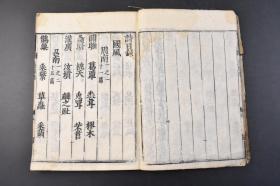 詩目錄
國風
周南一之一十一篇
關雎 葛覃 卷耳 樛木
螽斯 桃夭 兔罝 芣苢
漢廣 汝墳 麟之趾
召南一之二
鵲巢 采蘩 草蟲 采蘋